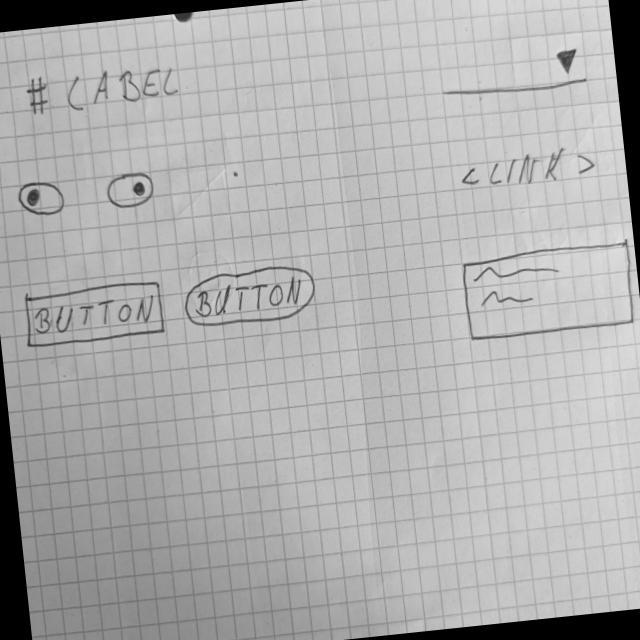 # LABEL
<LINK>
BUTTON BUTTON